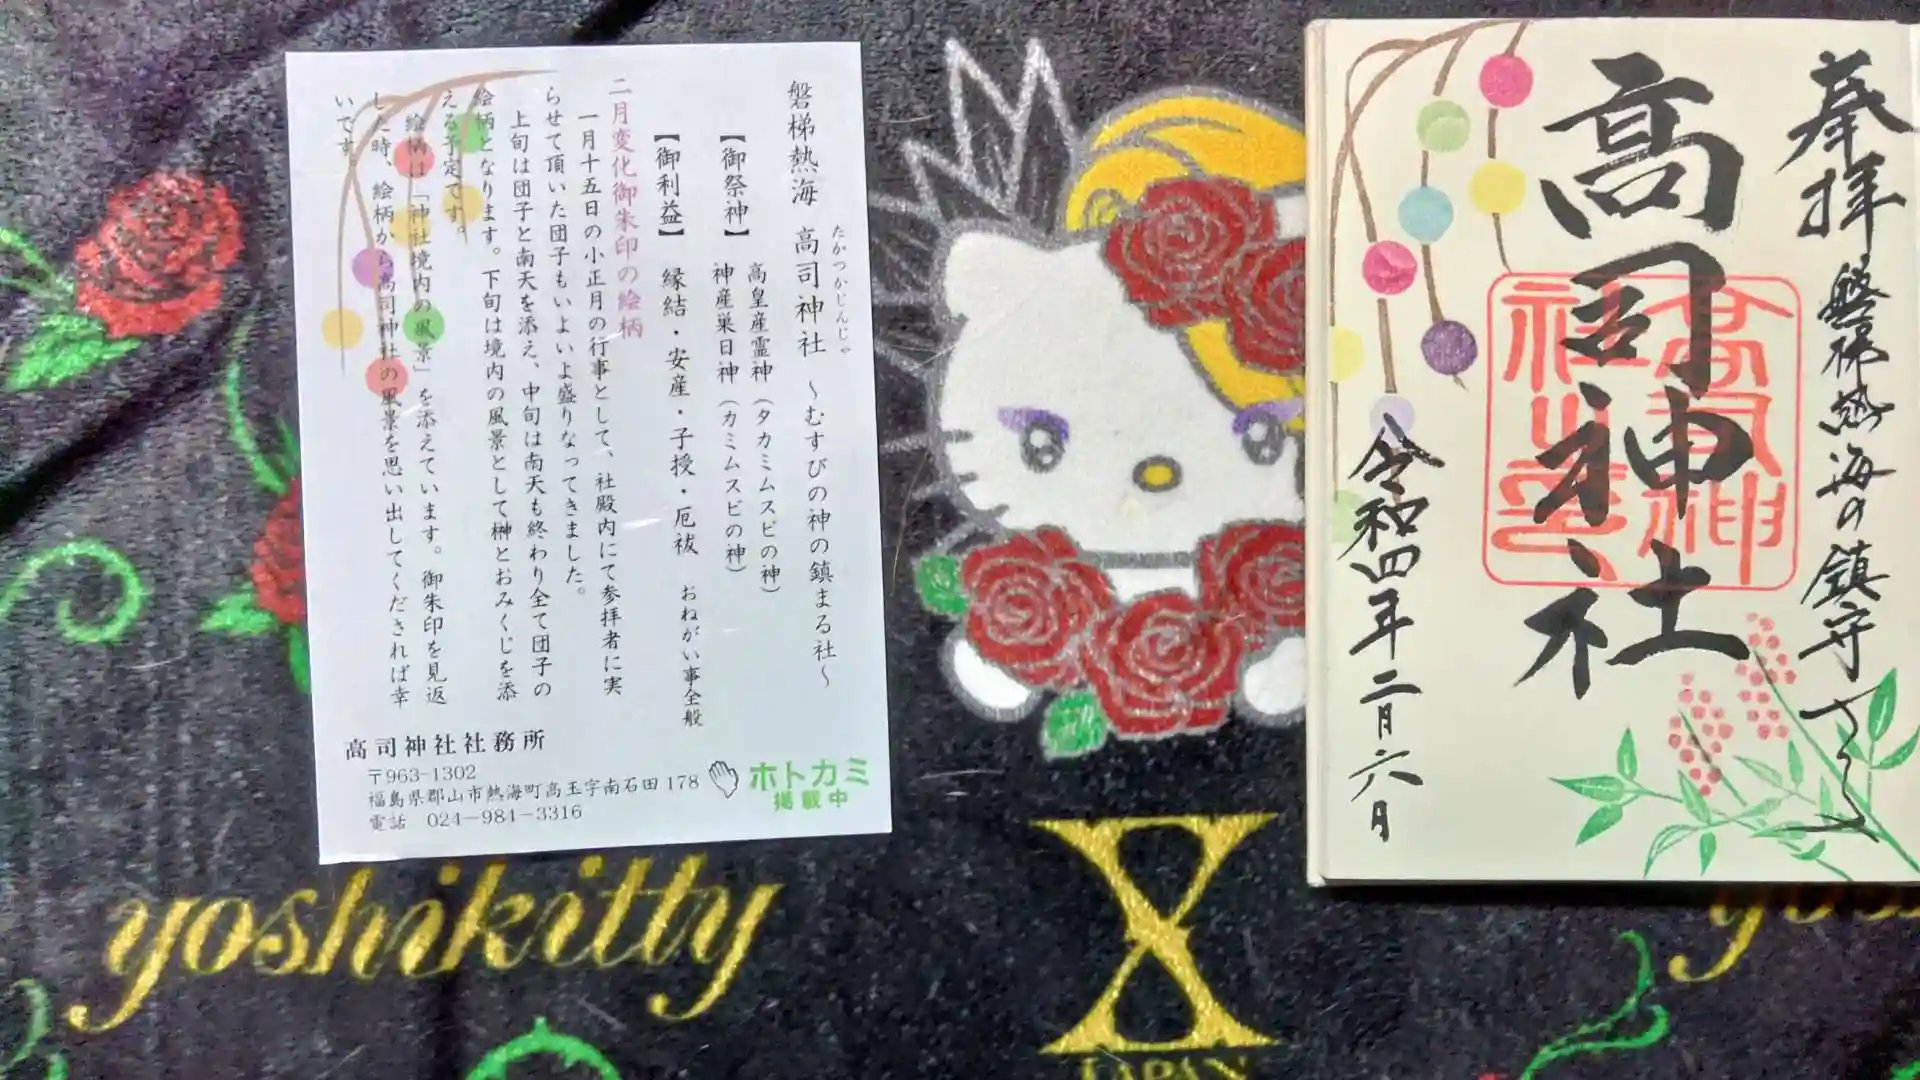 磐梯熱海 高司神社 ～むすびの神の鎮まる社～
たかつかじんじゃ
【御祭神】 高皇産霊神（タカミムスビの神）
神産巣日神（カミムスビの神）
【御利益】 縁結・安産・子授・厄祓 おねがい事全般
二月変化御朱印の絵柄
一月十五日の小正月の行事として、社殿内にて参拝者に実
らせて頂いた団子もいよいよ盛りなってきました。
上旬は団子と南天を添え、中旬は南天も終わり全て団子の
絵柄となります。下旬は境内の風景として榊とおみくじを添
える予定です。
絵柄は「神社境内の風景」を添えています。御朱印を見返
した時、絵柄から高司神社の風景を思い出してくだされば幸
いです。
高司神社社務所
〒963-1302
福島県郡山市熱海町高玉字南石田178
電話 024-984-3316
ホトカミ
掲載中
奉拝 磐梯熱海の鎮守
高司神社
高司神
社之
令和四年二月六日
yoshikitty
X
JAPAN